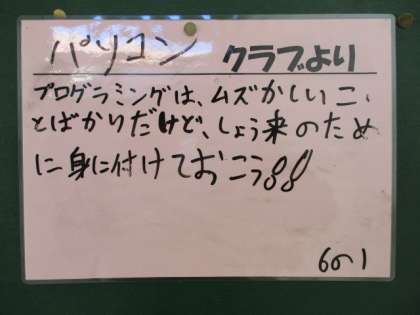 パソコン クラブより
プログラミングは、ムズかしいこ、
とばかりだけど、しょう来のため
に身に付けておこう!!
6の1